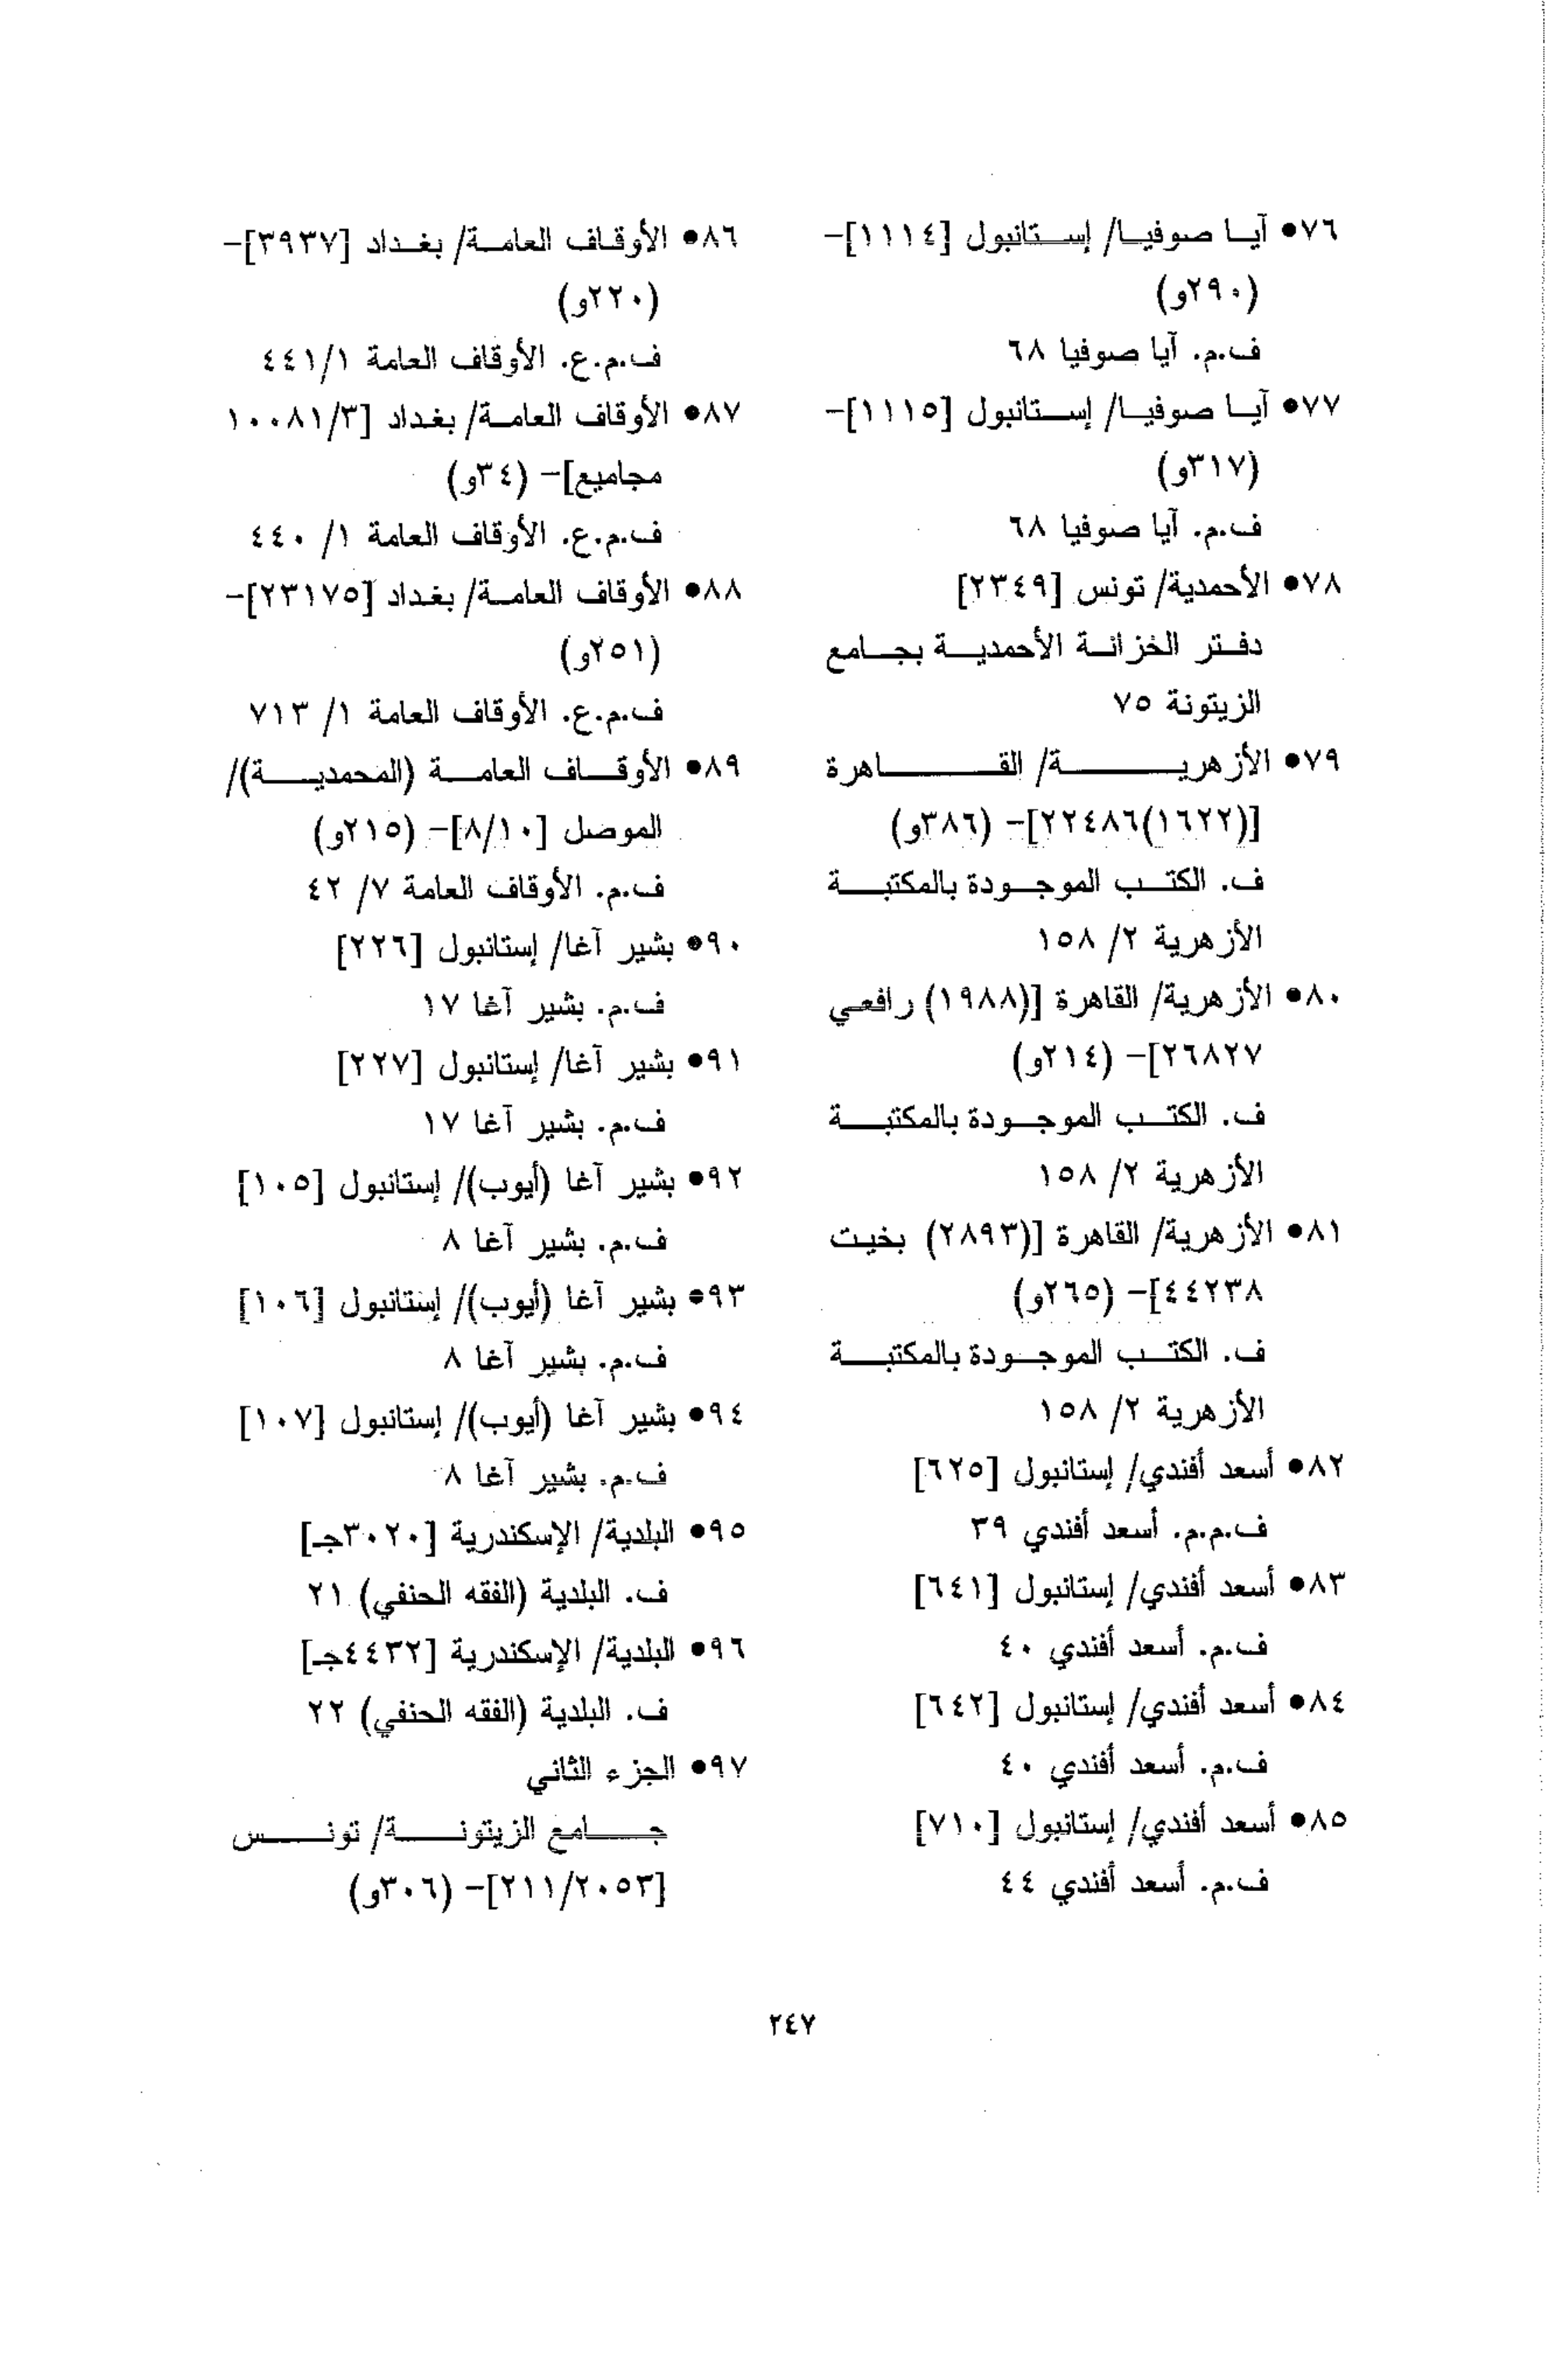 ٧٦• آيا صوفيا/ إستانبول [١١١٤]-
(٢٩٠و)
ف.م. آيا صوفيا ٦٨
٧٧• آيا صوفيا/ إستانبول [١١١٥]-
(٣١٧و)
ف.م. آيا صوفيا ٦٨
٧٨• الأحمدية/ تونس [٢٣٤٩]
دفتر الخزانة الأحمدية بجامع
الزيتونة ٧٥
٧٩• الأزهرية/ القاهرة
[(١٦٢٢)٢٢٤٨٦]- (٣٨٦و)
ف. الكتب الموجودة بالمكتبة
الأزهرية ٢/ ١٥٨
٨٠• الأزهرية/ القاهرة [(١٩٨٨) رافعي
٢٦٨٢٧]- (٢١٤و)
ف. الكتب الموجودة بالمكتبة
الأزهرية ٢/ ١٥٨
٨١• الأزهرية/ القاهرة [(٢٨٩٣) بخيت
٤٤٢٣٨]- (٢٦٥و)
ف. الكتب الموجودة بالمكتبة
الأزهرية ٢/ ١٥٨
٨٢• أسعد أفندي/ إستانبول [٦٢٥]
ف.م.م. أسعد أفندي ٣٩
٨٣• أسعد أفندي/ إستانبول [٦٤١]
ف.م. أسعد أفندي ٤٠
٨٤• أسعد أفندي/ إستانبول [٦٤٢]
ف.م. أسعد أفندي ٤٠
٨٥• أسعد أفندي/ إستانبول [٧١٠]
ف.م. أسعد أفندي ٤٤
٨٦• الأوقاف العامة/ بغداد [٣٩٣٧]-
(٢٢٠و)
ف.م.ع. الأوقاف العامة ٤٤١/١
٨٧• الأوقاف العامة/ بغداد [١٠٠٨١/٣
مجاميع]- (٣٤و)
ف.م.ع. الأوقاف العامة ١/ ٤٤٠
٨٨• الأوقاف العامة/ بغداد [٢٣١٧٥]-
(٢٥١و)
ف.م.ع. الأوقاف العامة ١/ ٧١٣
٨٩• الأوقاف العامة (المحمدية)/
الموصل [٨/١٠]- (٢١٥و)
ف.م. الأوقاف العامة ٧/ ٤٢
٩٠• بشير آغا/ إستانبول [٢٢٦]
ف.م. بشير آغا ١٧
٩١• بشير آغا/ إستانبول [٢٢٧]
ف.م. بشير آغا ١٧
٩٢• بشير آغا (أيوب)/ إستانبول [١٠٥]
ف.م. بشير آغا ٨
٩٣• بشير آغا (أيوب)/ إستانبول [١٠٦]
ف.م. بشير آغا ٨
٩٤• بشير آغا (أيوب)/ إستانبول [١٠٧]
ف.م. بشير آغا ٨
٩٥• البلدية/ الإسكندرية [٣٠٢٠جـ]
ف. البلدية (الفقه الحنفي) ٢١
٩٦• البلدية/ الإسكندرية [٤٤٣٢جـ]
ف. البلدية (الفقه الحنفي) ٢٢
٩٧• الجزء الثاني
جامع الزيتونة/ تونس
[٢١١/٢٠٥٣]- (٣٠٦و)
٢٤٧